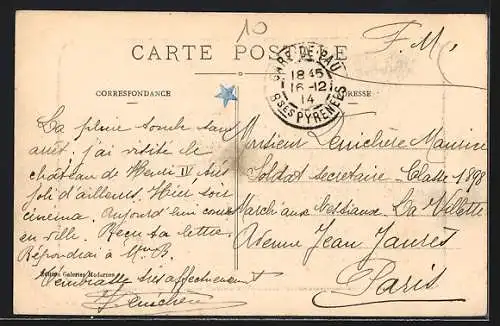 10
CARTE POSTALE
F. M.
GARE DE PAU
18 45
16-12
14
BSES PYRENEES
CORRESPONDANCE
ADRESSE
La pluie tombe sans
arrêt. j'ai visité le
château de Henri IV très
joli d'ailleurs. Hier soir
cinéma. Aujourd'hui course
en ville. Reçu ta lettre.
Répondrai à Mme B.
t'embrasse très affectueusement
Edition Galeries Modernes
Monsieur Maurice
Soldat secrétaire Classe 1898
Marché aux Bestiaux La Villette
Avenue Jean Jaurès
Paris